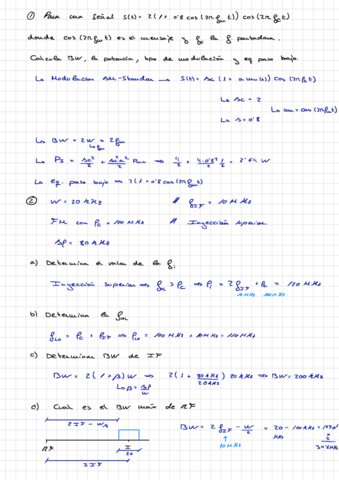 ① Para una señal s(t) = 2(1 + 0'8 cos(2π fm t)) cos(2π fc t)
donde cos(2π fm t) es el mensaje y fc la f portadora.
Calcula BW, la potencia, tipo de modulación y eq paso bajo
↳ Modulación AM-Standar → s(t) = Ac(1 + a m(t)) cos(2π fc t)
↳ Ac = 2
↳ m = cos(2π fm t)
↳ a = 0'8
↳ BW = 2W = 2fm
↳ fm
↳ Eq. paso bajo ⇒ 2(1 + 0'8 cos(2π fm t))
② W = 20 kHz // fIF = 10 MHz
FM con fc = 100 MHz // Inyección superior
Δf = 80 kHz
a) Determina el valor de la fi
Inyección superior ⇒ ⇒ fi = 2fIF + fc = 120 MHz
10 MHz 100 MHz
b) Determina la fOL
fLO = fc + fIF ⇒ fLO = 100 MHz + 10 MHz = 110 MHz
c) Determinar BW de IF
BW = 2(1 + β) W ⇒ 2(1 + 80 kHz / 20 kHz) 20 kHz ⇒ BW = 200 kHz
↳ β = Δf / W
d) Cual es el BW máx de RF
2IF - W/2
BW = 2 fIF - W/2
10 MHz
RF
2IF